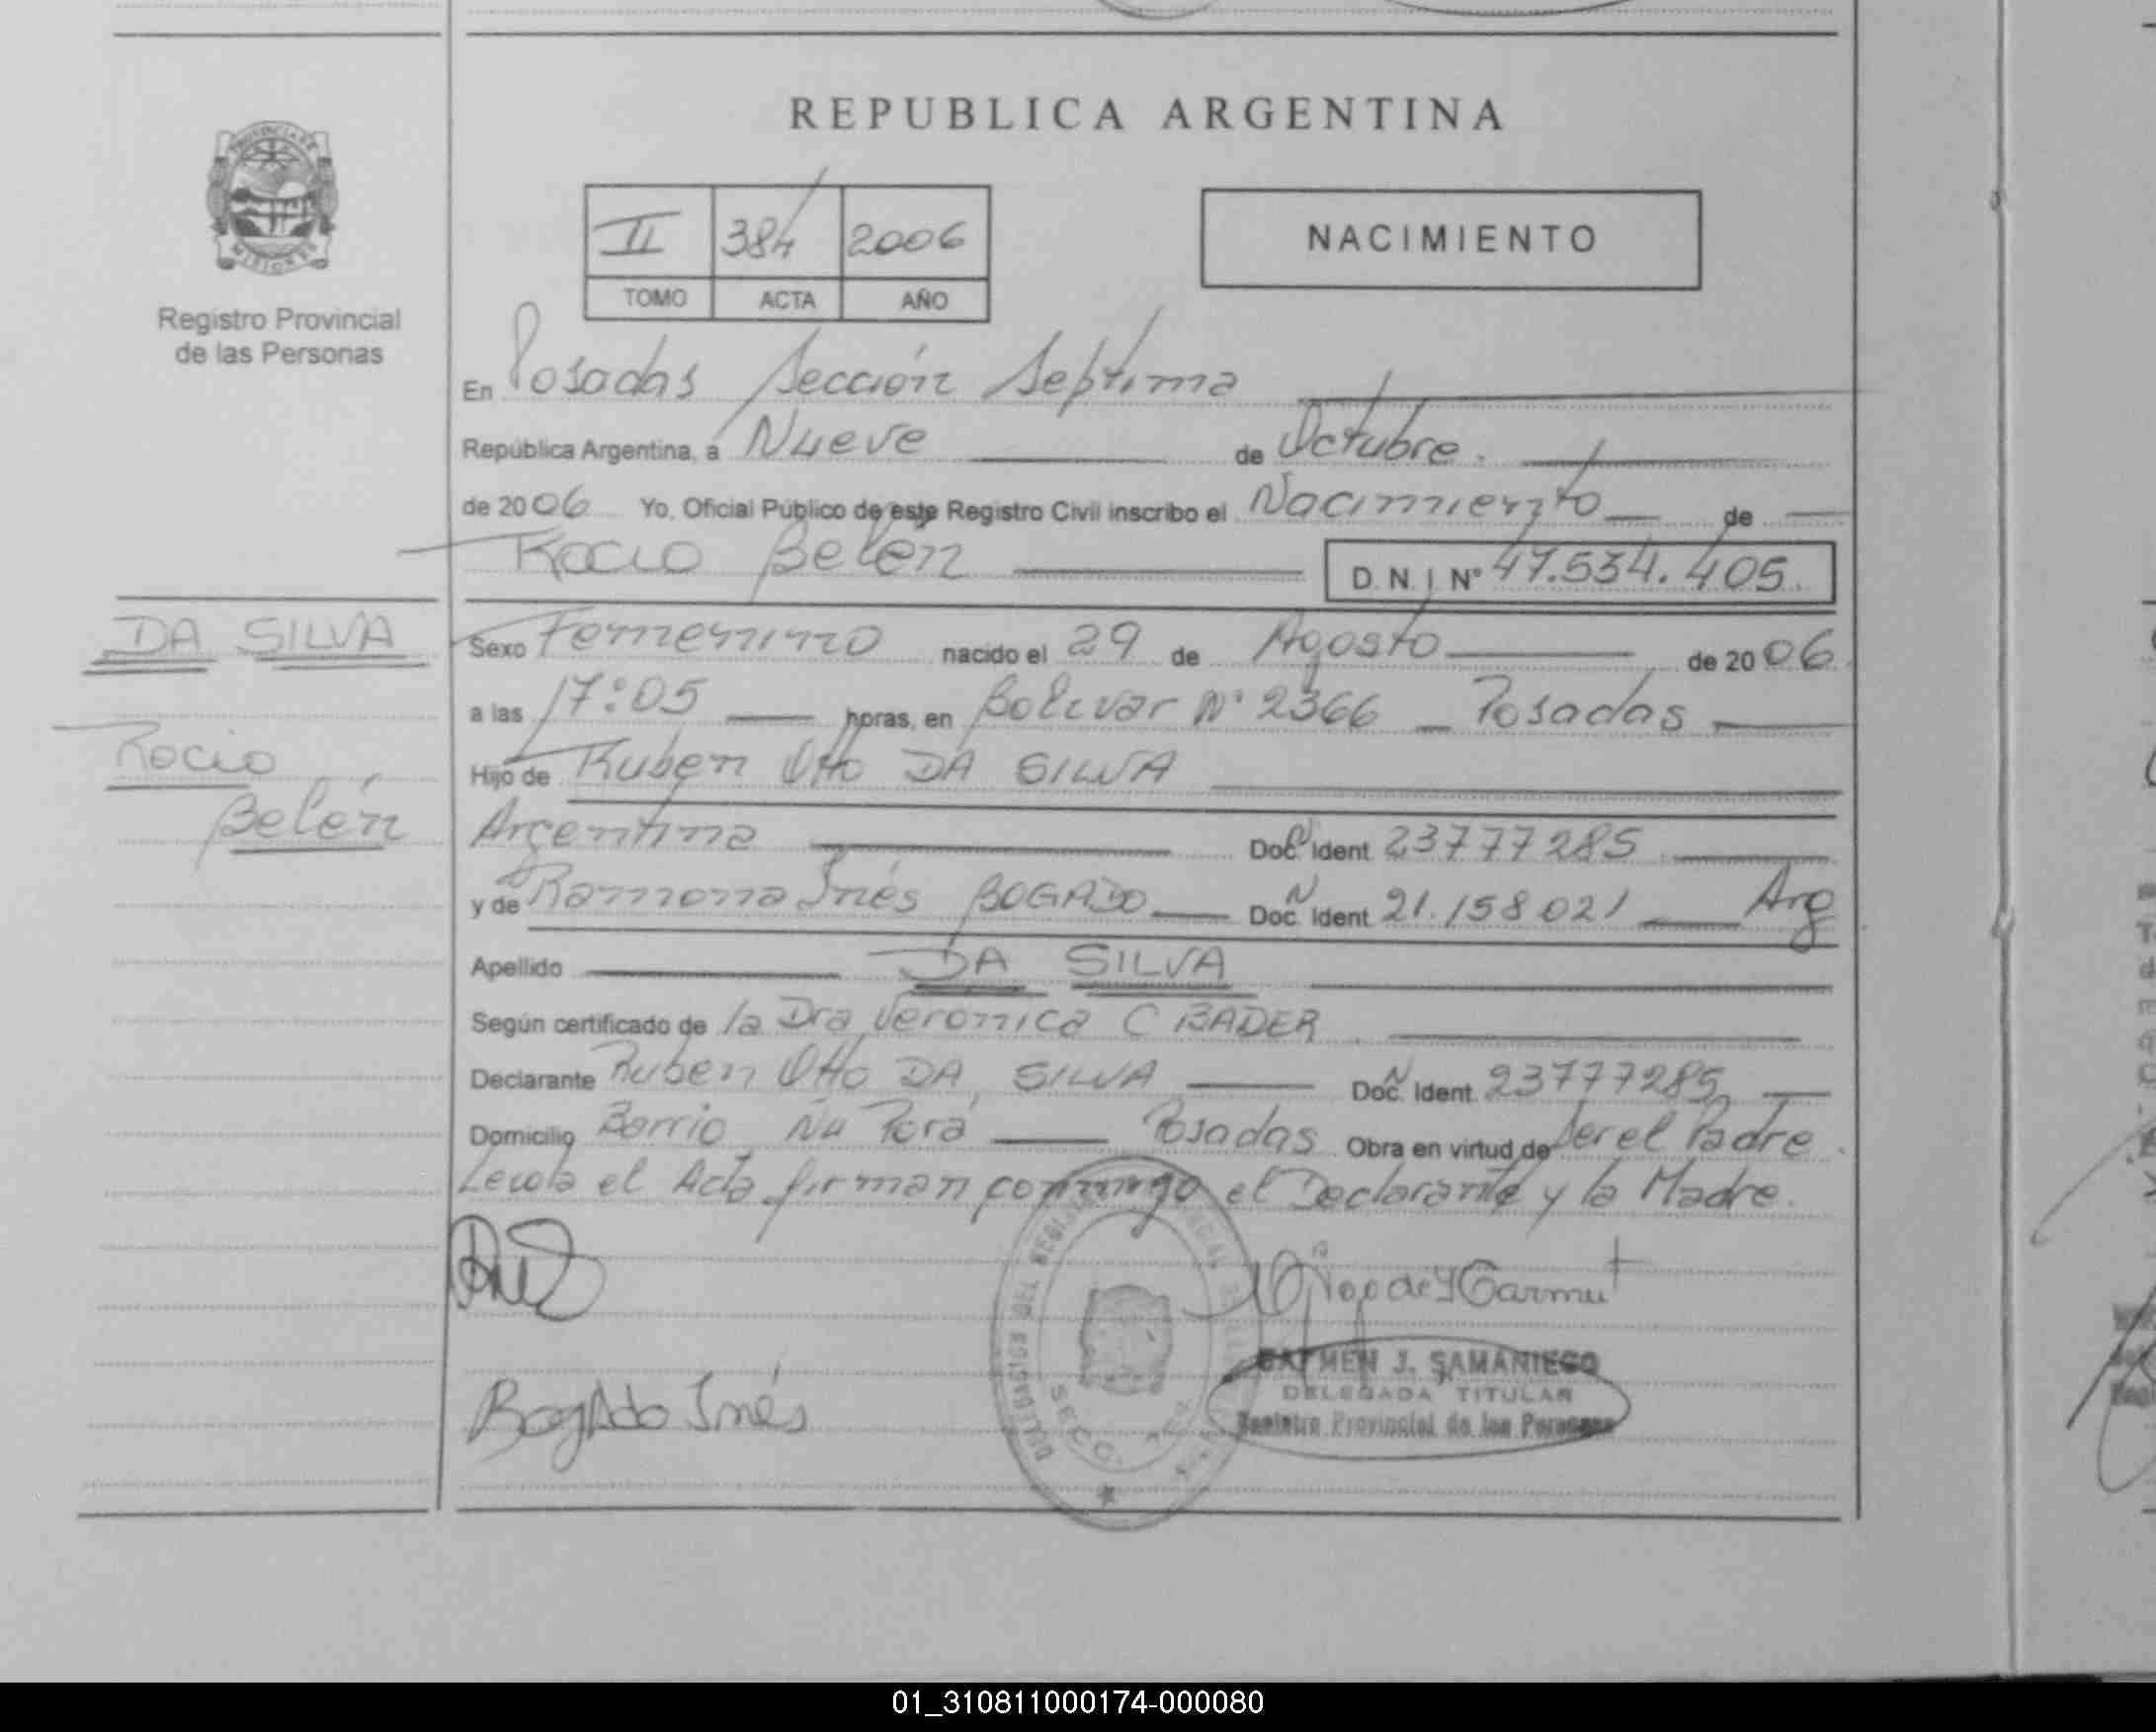 REPUBLICA ARGENTINA
PROVINCIA DE
MISIONES
Registro Provincial
de las Personas
II 384 2006
TOMO ACTA AÑO
NACIMIENTO
En Posadas Sección Septima
República Argentina, a Nueve de Octubre.
de 2006 Yo, Oficial Público de este Registro Civil inscribo el Nacimiento de
Rocio Belén D.N.I. Nº 47.534.405.
DA SILVA
Rocio
Belén
Sexo Femenino nacido el 29 de Agosto de 2006
a las 17:05 horas, en Bolivar Nº 2366 Posadas
Hijo de Ruben Otto DA SILVA
Argentina Doc. Ident. 23777285
y de Ramona Inés BOGADO Doc. Ident. 21.158.021 Arg
Apellido DA SILVA
Según certificado de la Dra Veronica C BADER
Declarante Ruben Otto DA SILVA Doc. Ident. 23777285
Domicilio Barrio Ñu Porá Posadas Obra en virtud de Ser el Padre.
Leida el Acta firman conmigo el Declarante y la Madre.
BogAdo Inés
CARMEN J. SAMANIEGO
DELEGADA TITULAR
Registro Provincial de las Personas
01_310811000174-000080